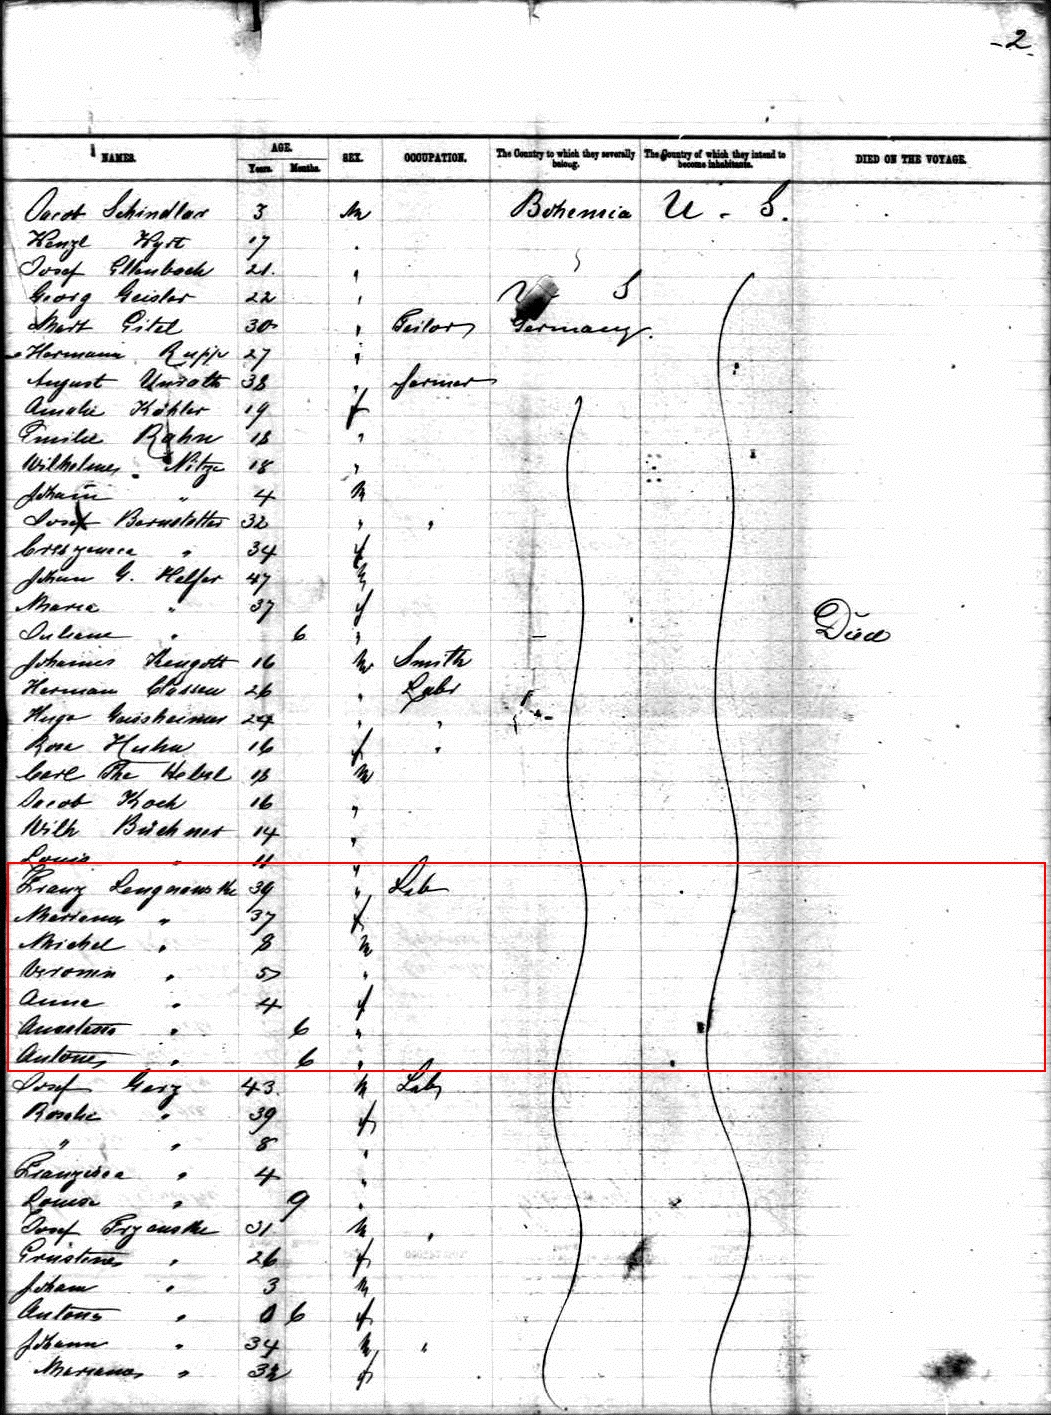 -2-
NAMES. AGE. SEX. OCCUPATION. The Country to which they severally belong. The Country of which they intend to become inhabitants. DIED ON THE VOYAGE.
Years. Months.
Jacob Schindlar 3 M Bohemia U - S.
Wenzl 17 "
Josef Ellenbach 21. "
Georg Geisler 22 " U S
Mart Gitel 30 " Teilor Germany.
Hermann Rupp 27 "
August Unrath 38 " farmer
Amalie Köhler 19 f
Emilie Rahn 18 "
Wilhelmine Nitze 18 "
Johann " 4 M
Josef Bernstetter 32 " "
" 34 f
Johann G. Helfer 47 M
Maria " 37 f
Juliane " 6 " Died
Johannes Kengott 16 M Smith
Herman Classen 26 " Labr
Hugo Geisheimer 24 " "
Rosa Huhn 16 f "
Carl 18 M
Jacob Koch 16 "
Wilh Büchner 14 "
Louis " 11 "
Franz 39 " Lab
Marianna " 37 f
Michel " 8 M
Veronin " 5 "
Anna " 4 f
Anastasia " 6 "
Antones " 6 "
Josef Garz 43 M Lab
Rosalie " 39 f
" " 8 "
Franzisca " 4 "
Louise " 9 "
Josef 31 M "
Ernstine " 26 f
Johann " 3 M
Antona " 0 6 f
Johann " 34 M "
Mariana " 32 f